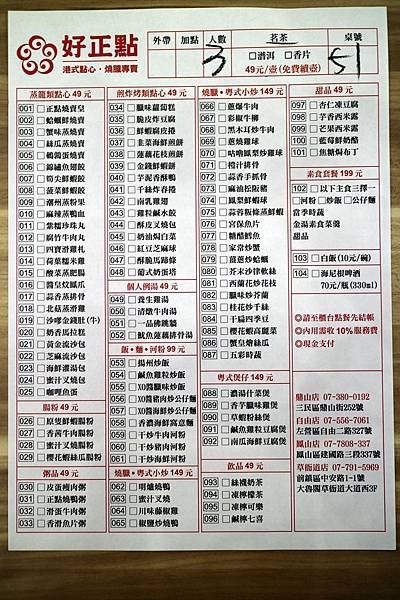 好正點
港式點心・燒臘專賣
外帶 加點 人數 茗茶 桌號
3 □普洱 □香片 51
49元/壺(免費續壺)
蒸籠類點心 49 元
001 □正點燒賣皇
002 □蛤蜊鮮燒賣
003 □蟹味蒸燒賣
004 □絲瓜蒸燒賣
005 □鵪鶉蛋燒賣
006 □錦繡魚翅餃
007 □筍尖鮮蝦餃
008 □菠菜鮮蝦餃
009 □潮州蒸粉果
010 □麻辣蒸鴨血
011 □紫糯珍珠丸
012 □腐竹牛肉丸
013 □西寶滑雞札
014 □荷葉糯米雞
015 □酸菜蒸肥腸
016 □醬皇炆鳳爪
017 □蒜香蒸排骨
018 □北菇蒸滑雞
019 □沙嗲金錢肚(牛)
020 □奶皇千層糕
021 □黃金流沙包
022 □芝麻流沙包
023 □海鮮灌湯包
024 □蜜汁叉燒包
025 □咖哩魚蛋
腸粉 49 元
026 □原隻鮮蝦腸粉
027 □香茜牛肉腸粉
028 □蜜汁叉燒腸粉
029 □櫻花蝦絲瓜腸粉
粥品 49 元
030 □皮蛋瘦肉粥
031 □正點燒鴨粥
032 □滑蛋牛肉粥
033 □香滑魚片粥
煎炸烤類點心 49 元
034 □臘味蘿蔔糕
035 □脆皮炸豆腐
036 □鮮蝦腐皮捲
037 □韭菜海鮮煎餅
038 □蓮藕花枝煎餅
039 □黃金炸春捲
040 □芋泥香酥鴨
041 □千絲炸春捲
042 □南乳雞翅
043 □雞粒鹹水餃
044 □酥皮叉燒包
045 □奶油焗白菜
046 □紅豆芝麻球
047 □酥脆馬蹄條
048 □葡式奶蛋塔
個人例湯 49 元
049 □養生雞湯
050 □清燉牛肉湯
051 □一品佛跳牆
052 □魷魚螺蒜排骨湯
飯・麵・河粉 99 元
053 □揚州炒飯
054 □鹹魚雞粒炒飯
055 □XO醬臘味炒飯
056 □XO醬豬肉炒公仔麵
057 □XO醬海鮮炒公仔麵
058 □香濃海鮮窩意麵
059 □干炒牛肉河粉
060 □干炒叉燒河粉
061 □干炒海鮮河粉
燒臘・粵式小炒 149 元
062 □明爐燒鴨
063 □蜜汁叉燒
064 □川味藤椒雞
065 □椒鹽炒燒鴨
燒臘・粵式小炒 149 元
066 □蔥爆牛肉
067 □彩椒牛柳
068 □黑木耳炒牛肉
069 □蔥燒雞球
070 □咕嚕鳳梨炒雞球
071 □橙汁排骨
072 □蒜香手抓骨
073 □麻油松阪豬
074 □鳳梨鮮蝦球
075 □蒜蓉粄條蒸鮮蝦
076 □宮保魚片
077 □糖醋鱈魚
078 □家常炒蟹
079 □薑蔥炒蛤蠣
080 □芥末沙律軟絲
081 □西蘭花炒花枝
082 □臘味炒芥蘭
083 □桂花炒千絲
084 □干扁四季豆
085 □櫻花蝦高麗菜
086 □蟹皇燴絲瓜
087 □五彩時蔬
粵式煲仔 149 元
088 □濃湯什菜煲
089 □香芋臘味雞煲
090 □草蝦粉絲煲
091 □鹹魚雞粒豆腐煲
092 □南瓜海鮮豆腐煲
飲品 49 元
093 □絲襪奶茶
094 □凍檸檬茶
095 □凍檸可樂
096 □鹹檸七喜
甜品 49 元
097 □杏仁凍豆腐
098 □芋香西米露
099 □芒果西米露
100 □藍莓鮮奶酪
101 □焦糖焗布丁
素食套餐 199 元
102 □以下主食三擇一
□河粉 □炒飯 □公仔麵
當季時蔬
金湯素食菜羹
甜品
103 □白飯(10元/碗)
104 □海尼根啤酒
70元/瓶(330ml)
◎請至櫃台點餐先結帳
◎內用需收10%服務費
◎現金支付
鼎山店 07-380-0192
三民區鼎山街252號
自由店 07-556-7061
左營區自由三路327號
鳳山店 07-7808-337
鳳山區建國路三段337號
草衙道店 07-791-5969
前鎮區中安路1-1號
大魯閣草衙道大道西3F